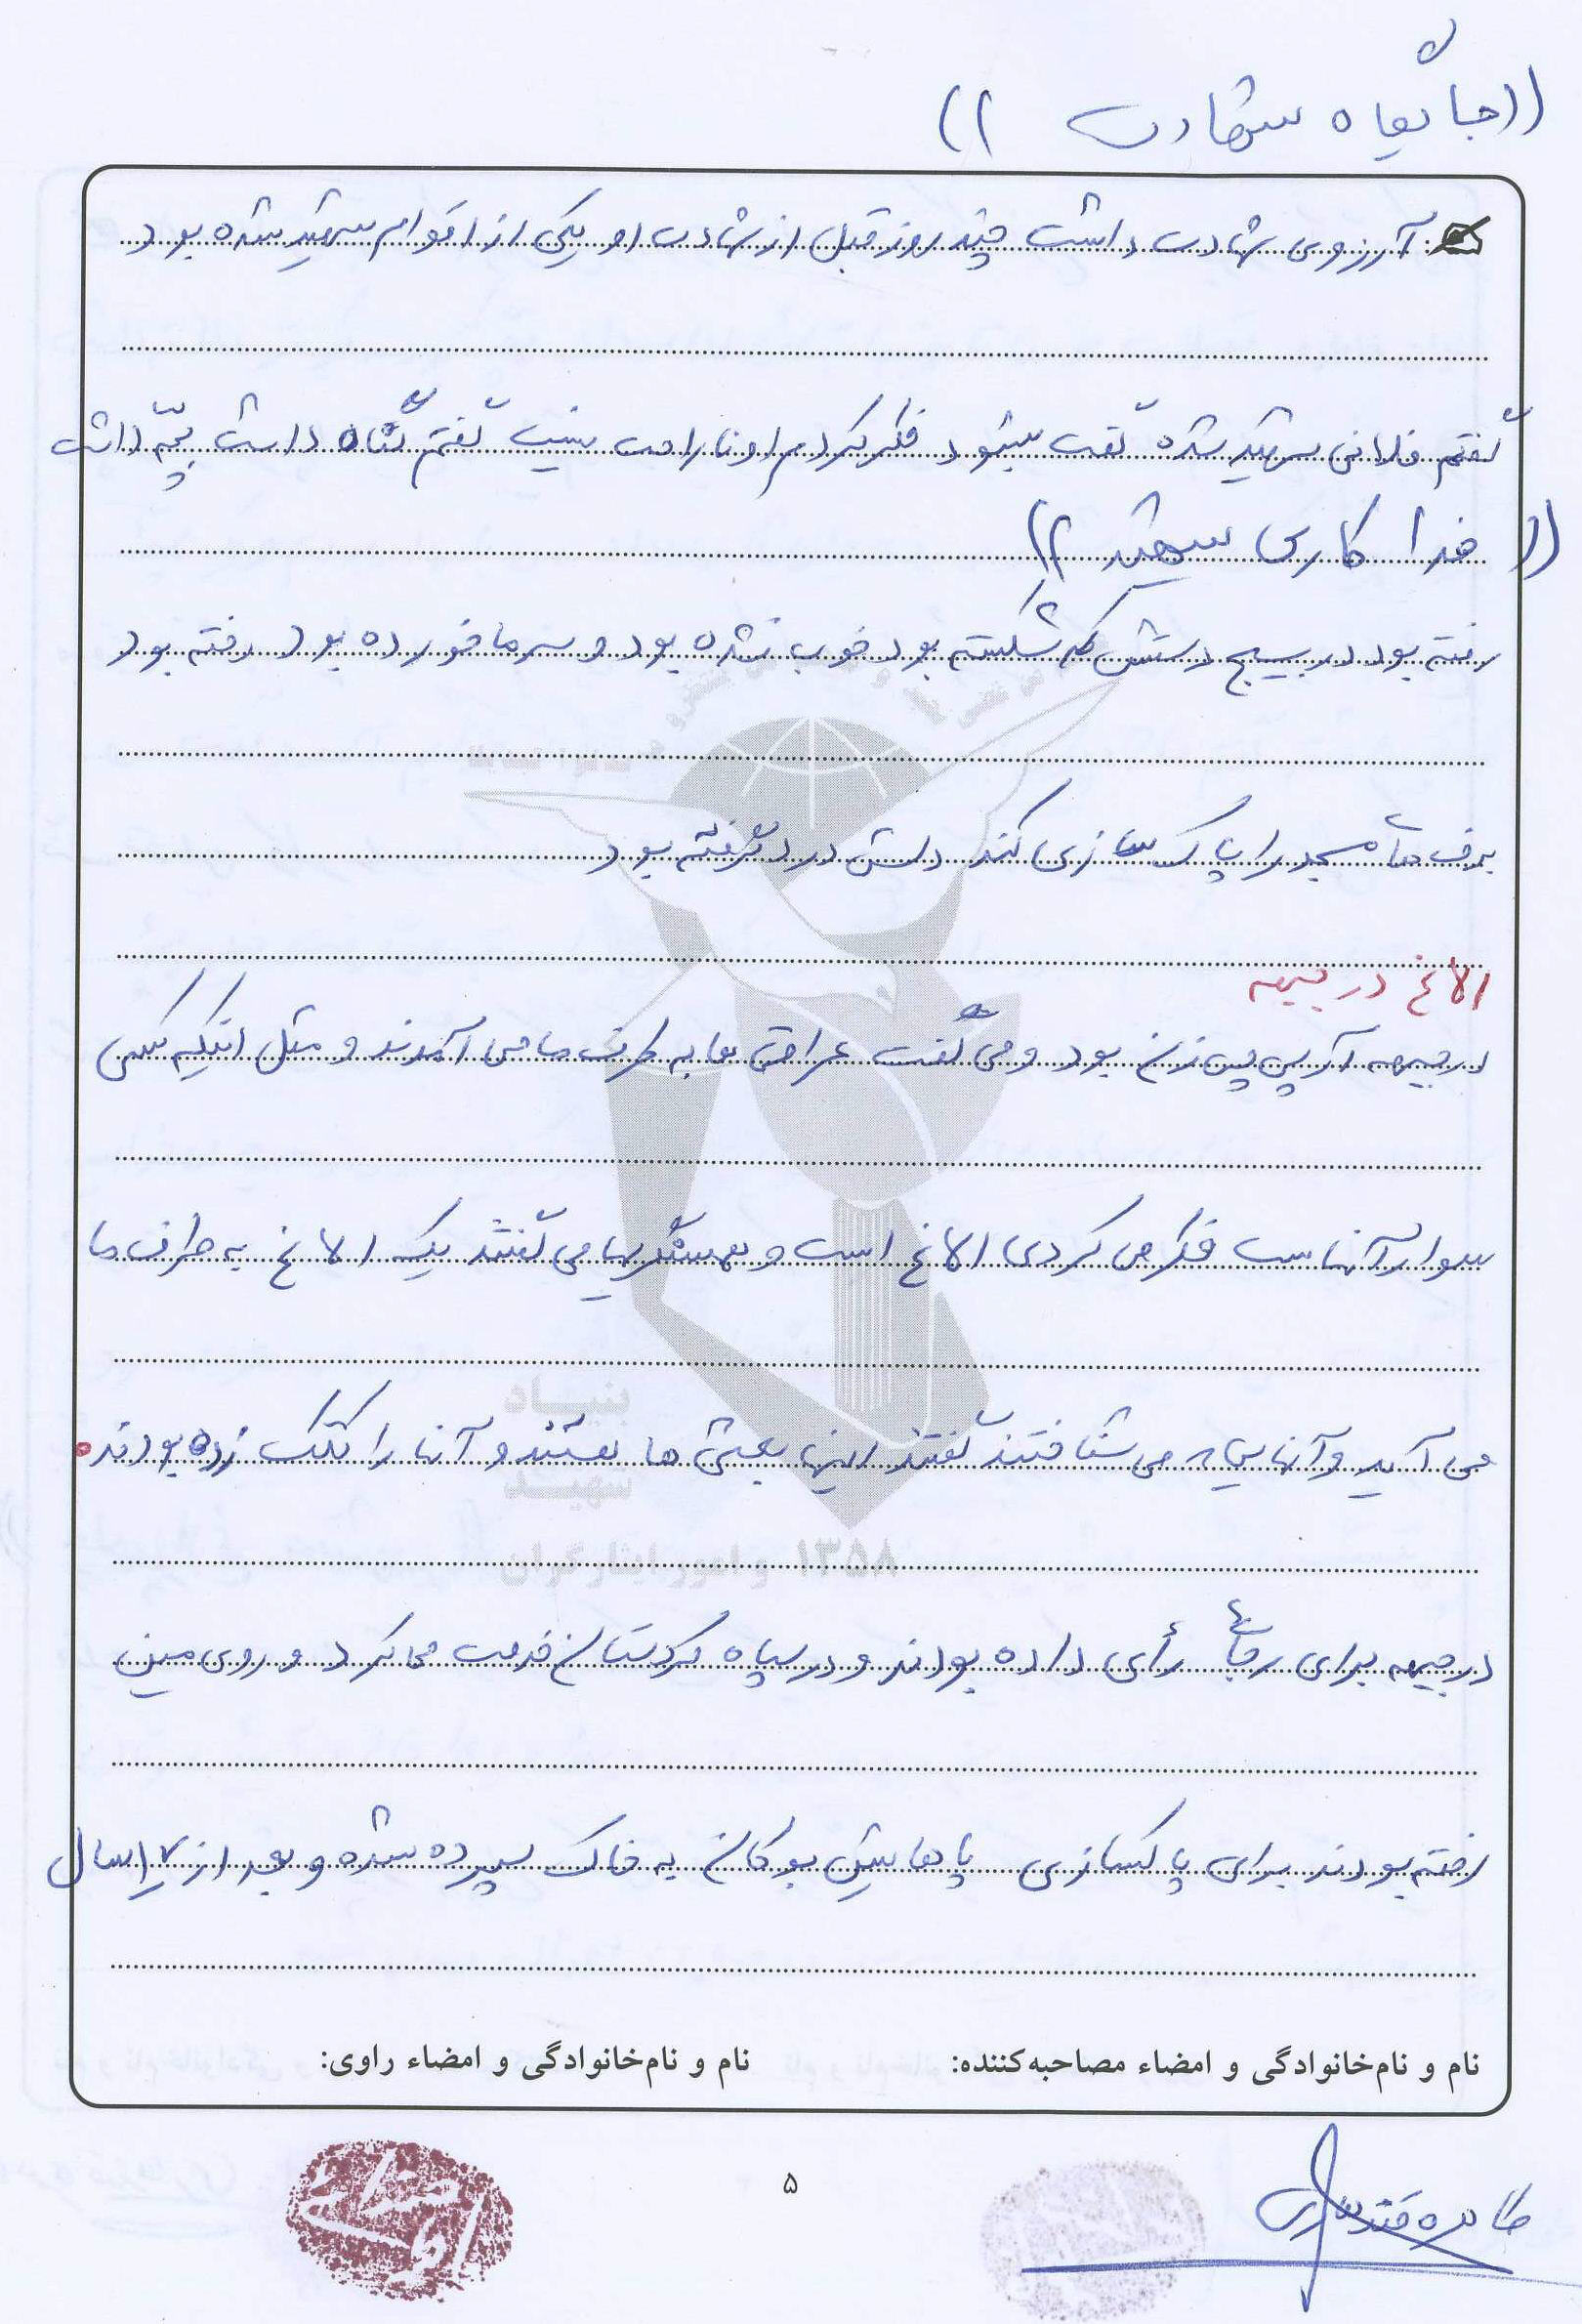 ((جایگاه شهادت))
آرزوی شهادت داشت چند روز قبل از شهادت او یکی از اقوام شهید شده بود
گفتم فلانی شهید شده گفت بشود فکر کردم او ناراحت نیست گفتم گناه داشت بچّه داشت
((فداکاری شهید))
رفته بود در بسیج دستش که شکسته بود خوب نشده بود و سرما خورده بود رفته بود
برف های مسجد را پاک سازی کند دستش درد گرفته بود
الاغ در جبهه
در جبهه آرپی پی زن بود و می گفت عراقی ها به طرف ما می آمدند و مثل اینکه کسی
سوار آنهاست فکر می کردی الاغ است و همسنگریها می گفتند یک الاغ به طرف ما
می آید و آنهایی که می شناختند گفتند اینها بعثی ها هستند و آنها را کتک زده بودند
در جبهه برای رجائی رأی داده بودند و در سپاه کردستان خدمت می کرد و روی مین
رفته بودند برای پاکسازی پاهایش بوکان به خاک سپرده شده و بعد از سال
بنیاد
شهید
و امور ایثارگران ۱۳۵۸
نام و نام‌خانوادگی و امضاء مصاحبه‌کننده: نام و نام‌خانوادگی و امضاء راوی:
۵
طاهره قندهاری